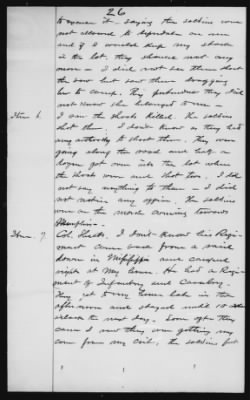 26
to remove it - saying the soldiers were
not allowed to depredate on me
and if I would keep my shoats
in the lot, they should not any
more - I did not see them shoot
the sow but saw them dragging
her to camp. They pretended they did
not know she belonged to me -
Item 6. I saw the shoats killed. The soldiers
shot them. I don't know as they had
any authority to shoot them. They were
going along the road and half a
dozen got over into the lot where
the shoats were and shot two. I did
not say anything to them - I did
not notice any officer. The soldiers
were on the march coming towards
Memphis.
Item 7. Col. Hicks. I don't know his Regi-
ment came back from a raid
down in Mississippi and camped
right at my house. He had a Regi-
ment of Infantry and Cavalry.
They got to my house late in the
afternoon and stayed until 10
o'clock the next day. Soon after they
came I saw they were getting my
corn from my crib, the soldiers put